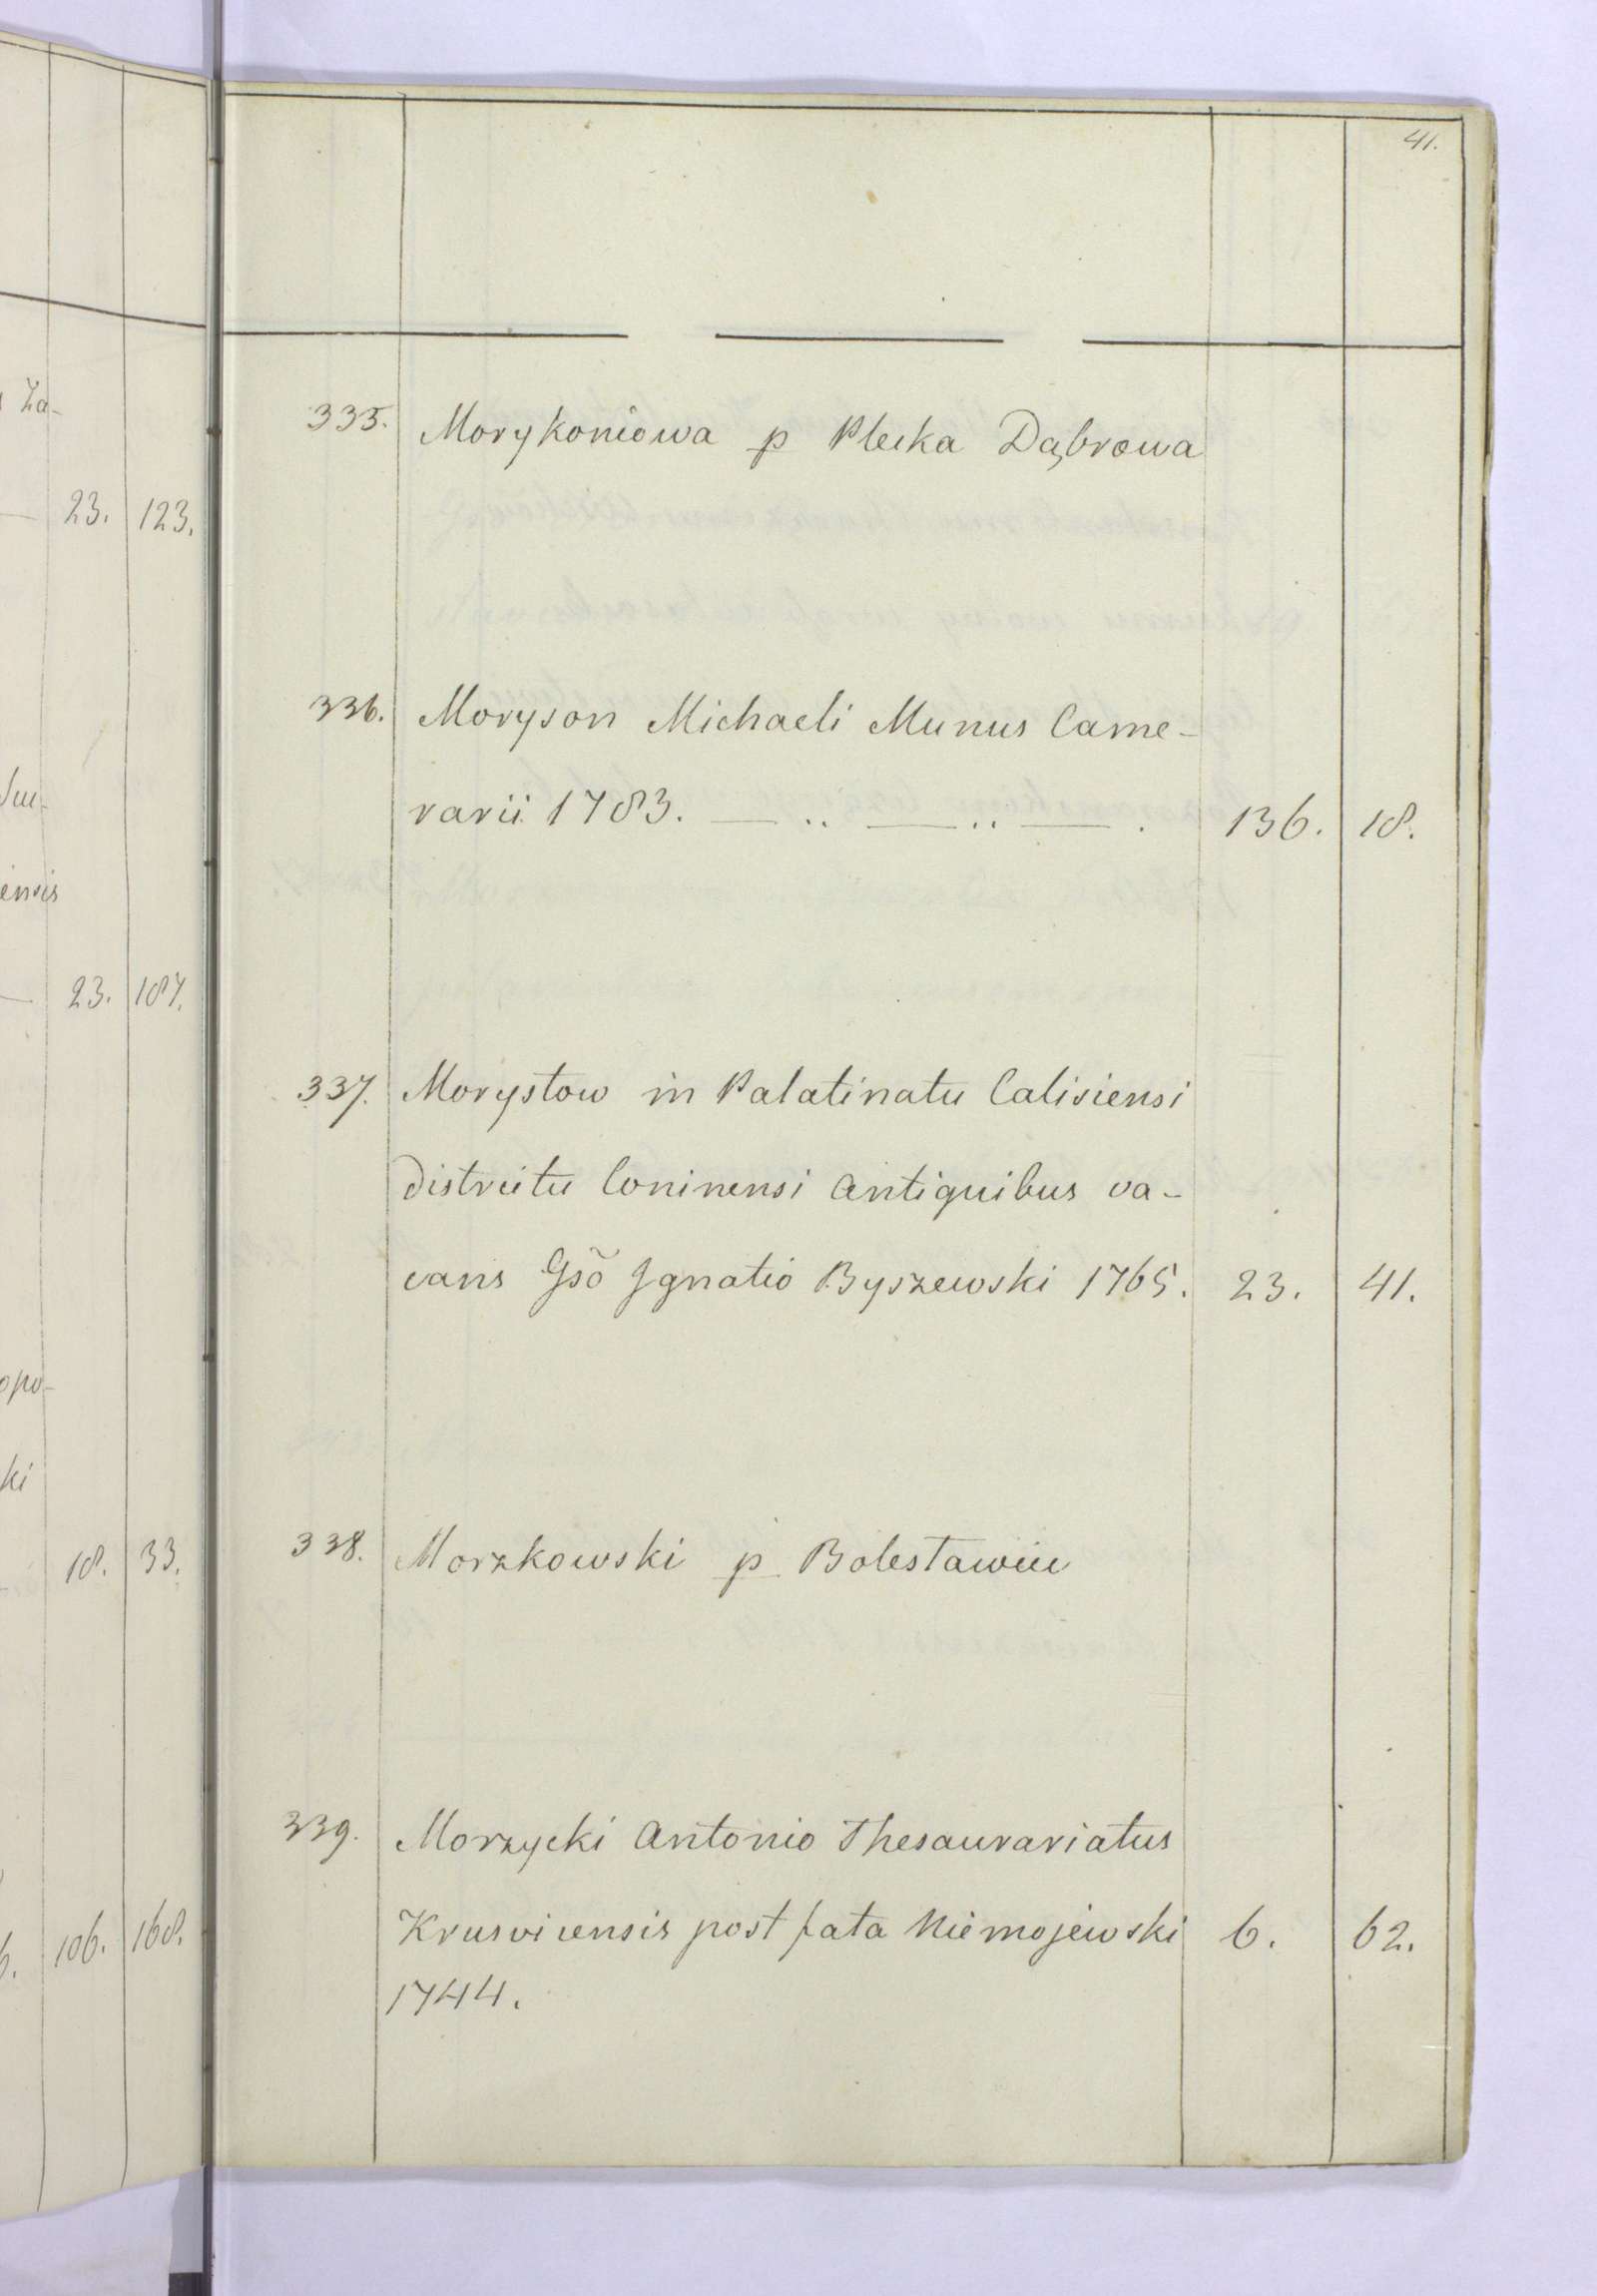 41.
335. Morykoniowa p Plecka Dąbrowa
336. Moryson Michaeli Munus Came-
rarii 1783. — .. — .. — . 136. 18.
337. Morystow in Palatinatu Calisiensi
Districtu Coninensi antiquibus va-
cans Gso͂ Ignatio Byszewski 1765. 23. 41.
338. Morzkowski p Bolesławiec
339. Morzycki Antonio Thesaurariatus
Krusvicensis post fata Niemojewski 6. 62.
1744.
Za-
23. 123.
ensis
23. 187.
opo-
ki
18. 33.
106. 168.